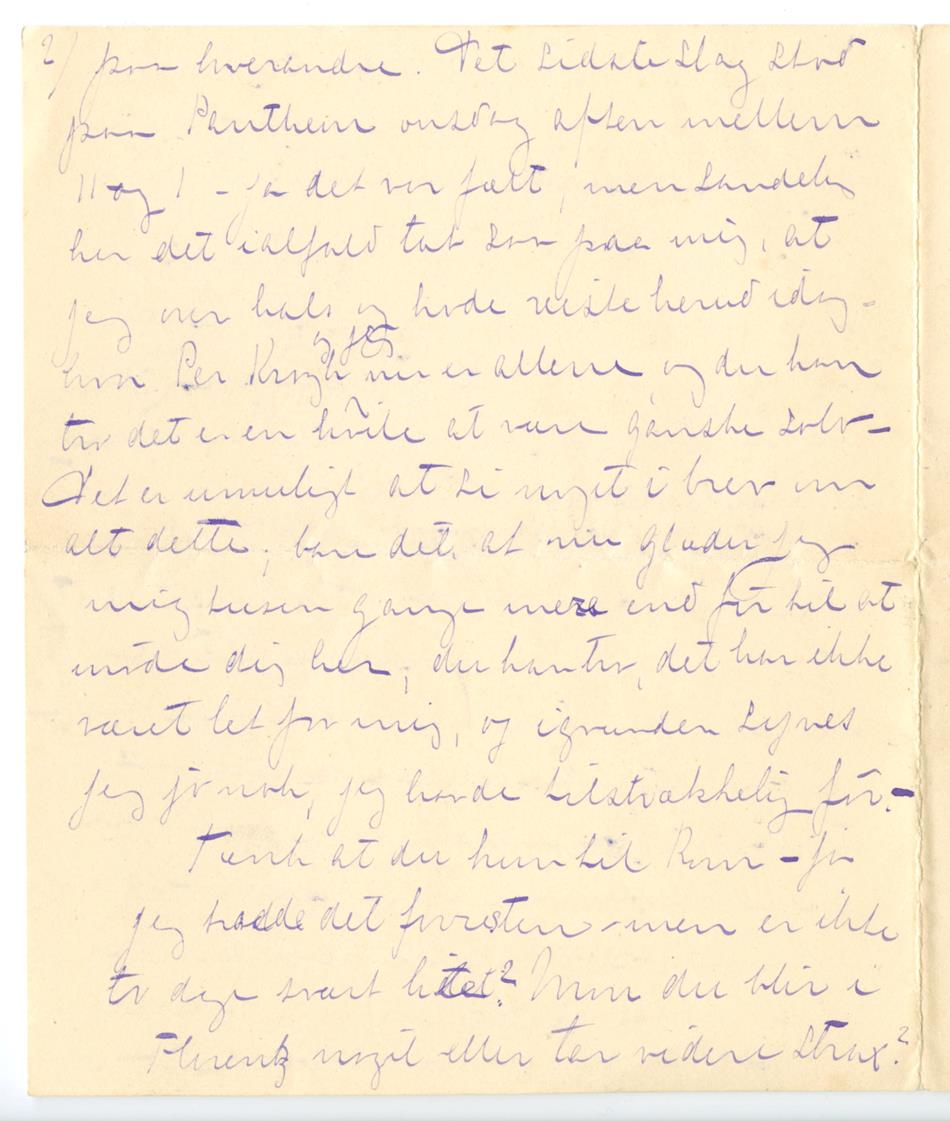 2/ paa hverandre. Det sidste slag stod
paa Pantheon onsdag aften mellem
11 og 1 – ja det var fælt, men sandelig
har det ialfald tat saa paa mig, at
jeg over hals og hode reiste herud idag –
hvor Per Krogh og jeg nu er allene, og du kan
tro det er en hvile at være ganske solo –
Det er umuligt at si noget i brev om
alt dette, bare det, at nu glæder jeg
mig tusen gange mere end før til at
møde dig her, du kan tro, det har ikke
været let for mig, og igrunden synes
jeg jo nok, jeg havde tilstrækkelig før. –
Tænk at du kom til Rom – ja
jeg spaadde det forresten – men er ikke
to dage svært litet? Mon du blir i
Florentz noget eller tar videre strax?